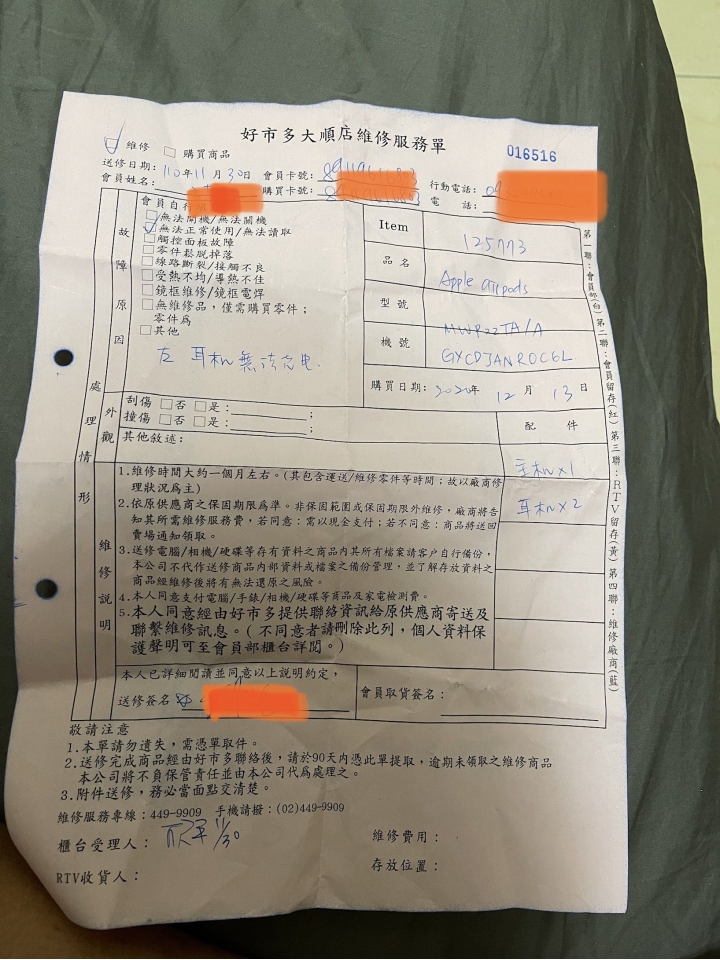 好市多大順店維修服務單
維修 購買商品
016516
送修日期: 110年11月30日 會員卡號:
行動電話:
會員姓名: 購買卡號:
電 話:
故障原因
會員自行
無法開機/無法關機
無法正常使用/無法讀取
觸控面板故障
零件鬆脫掉落
線路斷裂/接觸不良
受熱不均/導熱不佳
鏡框維修/鏡框電焊
無維修品,僅需購買零件;
零件為
其他
左 耳机無法充电.
Item 125773
品名 Apple airpods
型號 MWP22TA/A
機號 GXCDJANROC6L
購買日期: 2020年 12月 13日
處理情形
外觀
刮傷 否 是: ;
撞傷 否 是: ;
其他敘述:
配 件
主机x1
耳机x2
維修說明
1.維修時間大約一個月左右。(其包含運送/維修零件等時間;故以廠商修
理狀況為主)
2.依原供應商之保固期限為準。非保固範圍或保固期限外維修,廠商將告
知其所需維修服務費,若同意:需以現金支付;若不同意:商品將送回
賣場通知領取。
3.送修電腦/相機/硬碟等存有資料之商品內其所有檔案請客戶自行備份,
本公司不代作送修商品內部資料或檔案之備份管理,並了解存放資料之
商品經維修後將有無法還原之風險。
4.本人同意支付電腦/手錶/相機/硬碟等商品及家電檢測費。
5.本人同意經由好市多提供聯絡資訊給原供應商寄送及
聯繫維修訊息。(不同意者請刪除此列,個人資料保
護聲明可至會員部櫃台詳閱。)
本人已詳細閱讀並同意以上說明約定,
送修簽名
會員取貨簽名:
第一聯:會員部(白) 第二聯:會員留存(紅) 第三聯:RTV留存(黃) 第四聯:維修廠商(藍)
敬請注意
1.本單請勿遺失,需憑單取件。
2.送修完成商品經由好市多聯絡後,請於90天內憑此單提取,逾期未領取之維修商品
本公司將不負保管責任並由本公司代為處理之。
3.附件送修,務必當面點交清楚。
維修服務專線:449-9909 手機請撥:(02)449-9909
櫃台受理人: 11/30
維修費用:
存放位置:
RTV收貨人: